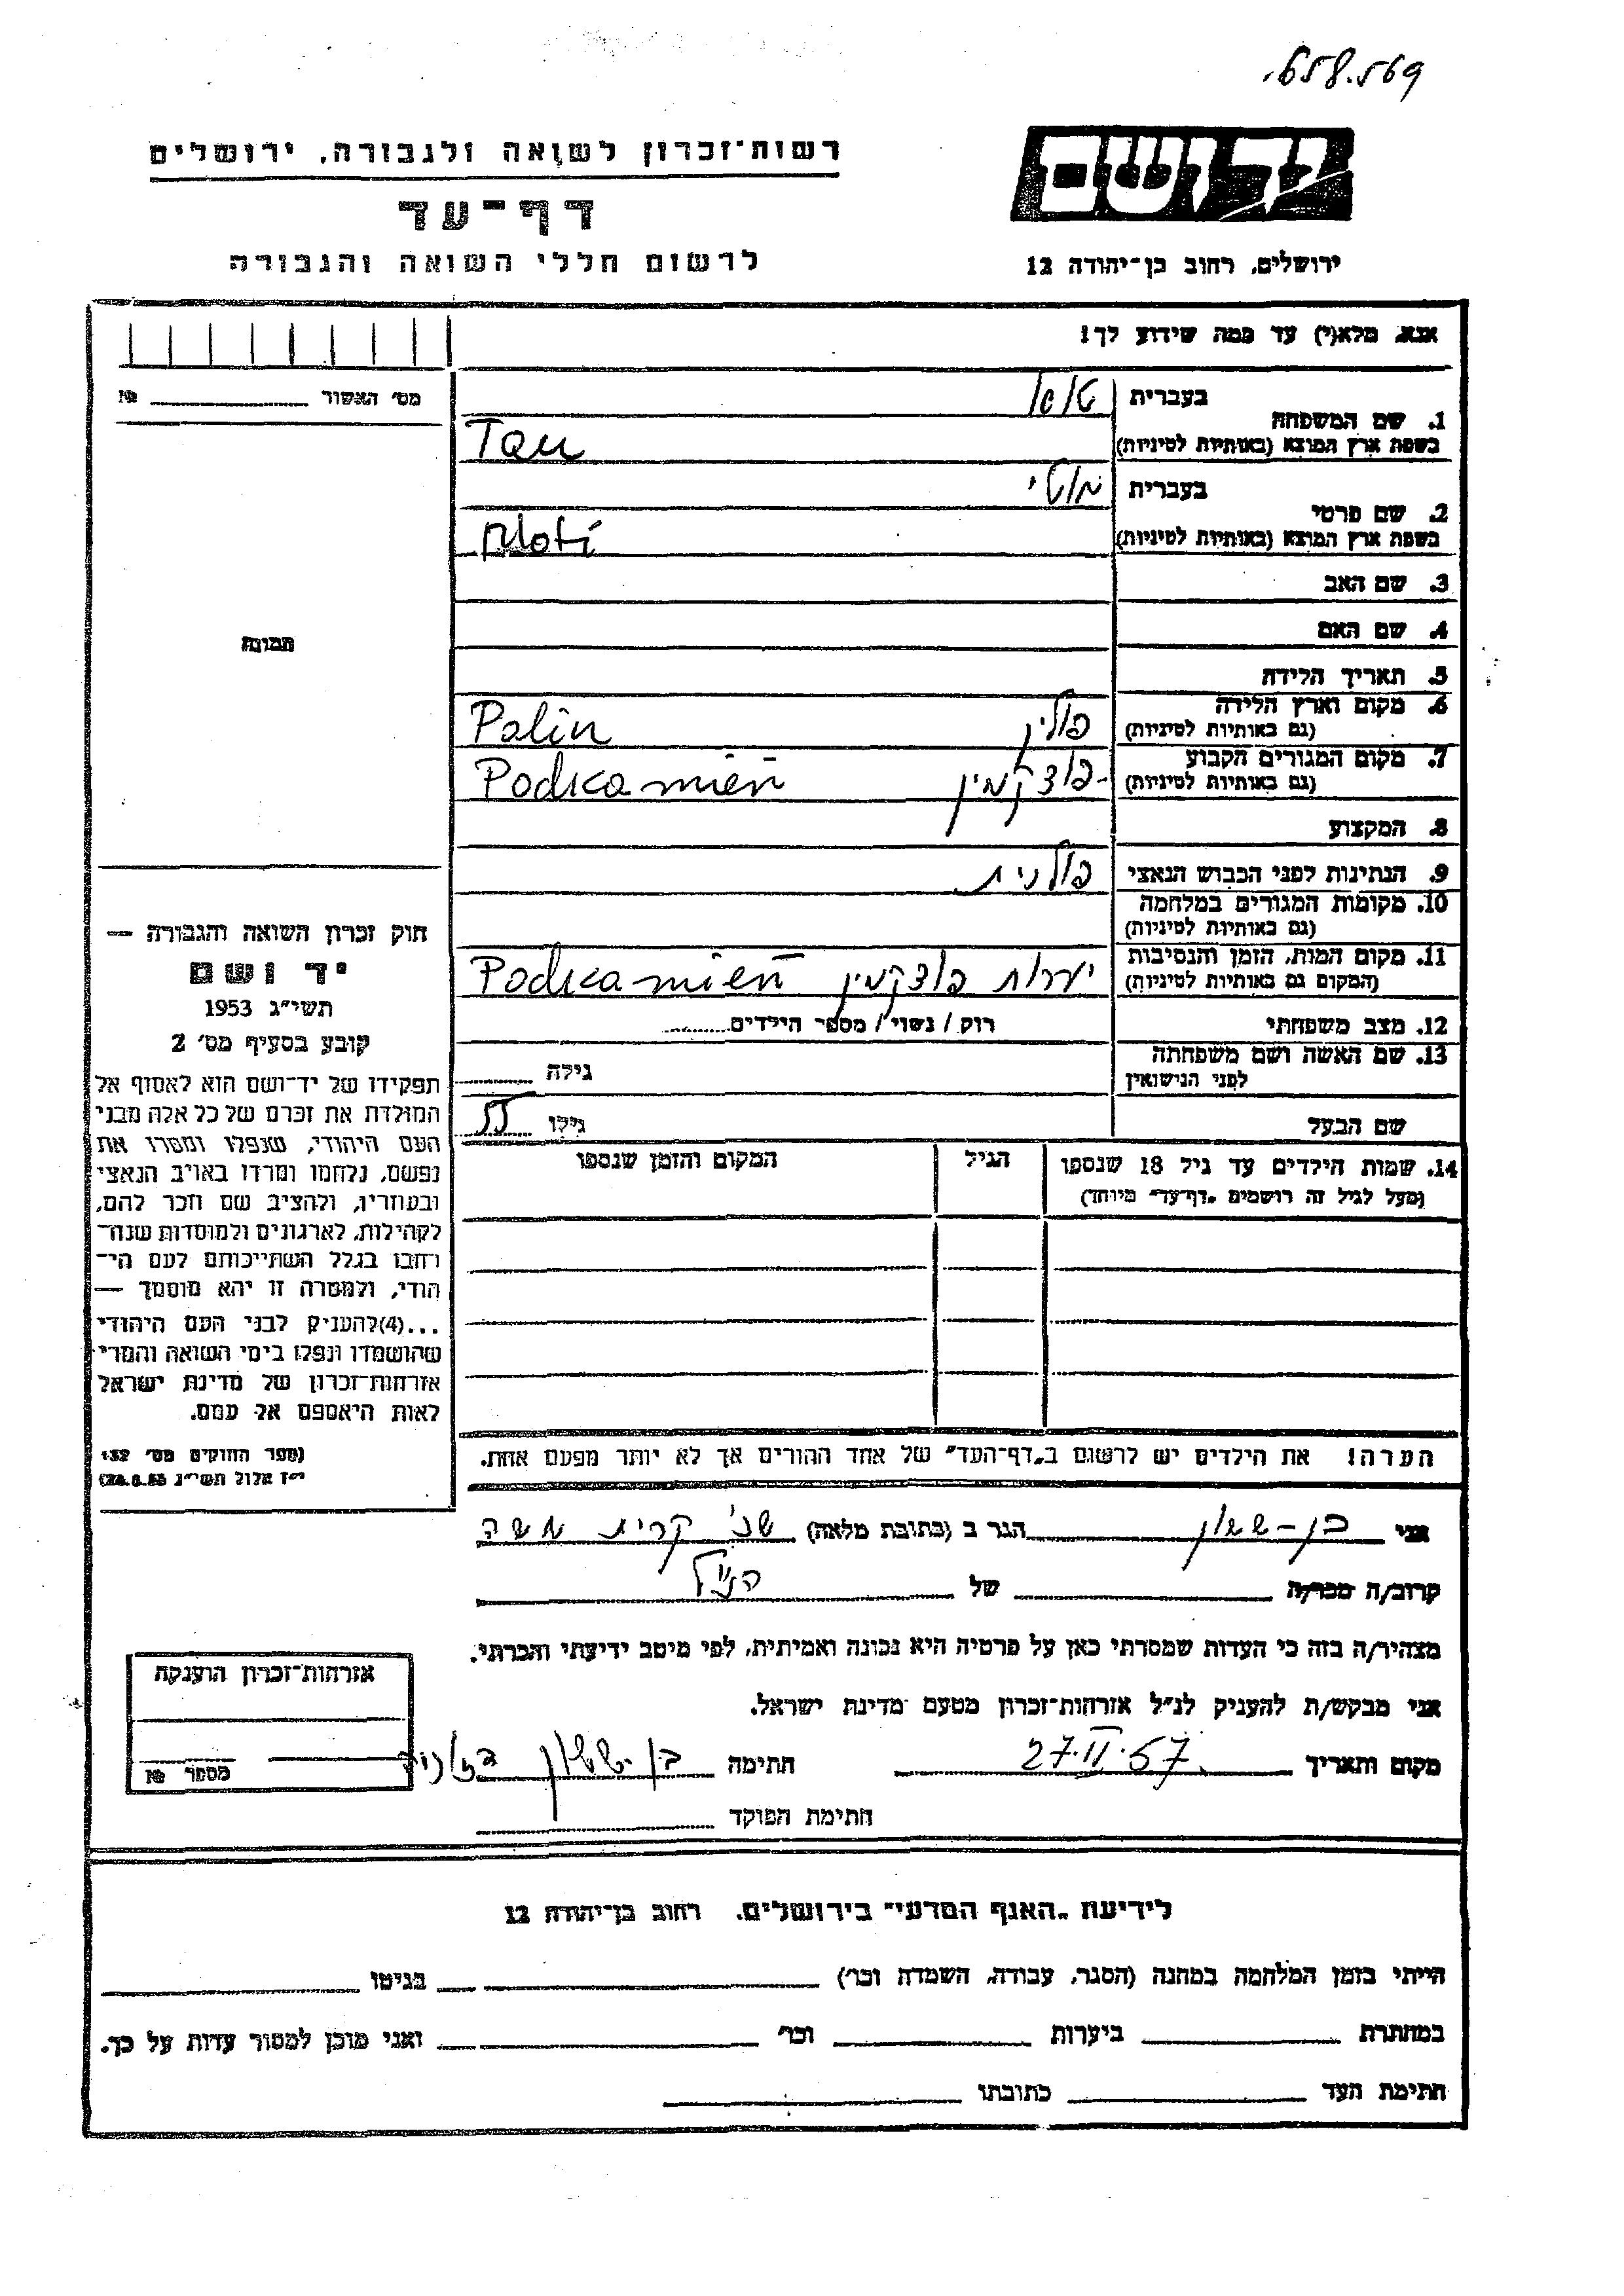 658.569
רשות־זכרון לשואה ולגבורה, ירושלים
יד ושם
דף־עד
לרשום חללי השואה והגבורה
ירושלים, רחוב בן־יהודה 12
אנא, מלא(י) עד כמה שידוע לך!
מס׳ האשור № 
בעברית
1. שם המשפחה
בשפת ארץ המוצא (באותיות לטיניות) Tau
בעברית מוטי
2. שם פרטי
בשפת ארץ המוצא (באותיות לטיניות) Moti
3. שם האב
4. שם האם
תמונה
5. תאריך הלידה
6. מקום וארץ הלידה
(גם באותיות לטיניות) פולין Polin
7. מקום המגורים הקבוע
(גם באותיות לטיניות) פודקמין Podkamień
8. המקצוע
9. הנתינות לפני הכבוש הנאצי פולנית
10. מקומות המגורים במלחמה
(גם באותיות לטיניות)
11. מקום המות, הזמן והנסיבות
(המקום גם באותיות לטיניות) יערות פודקמין Podkamień
12. מצב משפחתי רוק / נשוי / מספר הילדים
13. שם האשה ושם משפחתה
לפני הנישואין גילה
שם הבעל גילו 55
14. שמות הילדים עד גיל 18 שנספו הגיל המקום והזמן שנספו
(מעל לגיל זה רושמים „דף־עד״ מיוחד)
הערה! את הילדים יש לרשום ב„דף־העד״ של אחד ההורים אך לא יותר מפעם אחת.
חוק זכרון השואה והגבורה —
יד ושם
תשי״ג 1953
קובע בסעיף מס׳ 2
תפקידו של יד־ושם הוא לאסוף אל
המולדת את זכרם של כל אלה מבני
העם היהודי, שנפלו ומסרו את
נפשם, נלחמו ומרדו באויב הנאצי
ובעוזריו, ולהציב שם וזכר להם,
לקהילות, לארגונים ולמוסדות שנח־
רבו בגלל השתייכותם לעם הי־
הודי, ולמטרה זו יהא מוסמך —
...(4)להעניק לבני העם היהודי
שהושמדו ונפלו בימי השואה והמרי
אזרחות־זכרון של מדינת ישראל
לאות היאספם אל עמם.
(ספר החוקים מס׳ 132
י״ז אלול תשי״ג 28.8.53)
אני בן-ששון הגר ב (כתובת מלאה) שכ׳ קרית משה
קרוב/ה מכר/ה של הנ״ל
מצהיר/ה בזה כי העדות שמסרתי כאן על פרטיה היא נכונה ואמיתית, לפי מיטב ידיעתי והכרתי.
אני מבקש/ת להעניק לנ״ל אזרחות־זכרון מטעם מדינת ישראל.
מקום ותאריך 27.II.57 חתימה בן ששון
חתימת הפוקד
אזרחות־זכרון הוענקה
מספר №
לידיעת „האגף המדעי״ בירושלים, רחוב בן־יהודה 12
הייתי בזמן המלחמה במחנה (הסגר, עבודה, השמדה וכו׳) בגיטו
במחתרת ביערות וכו׳ ואני מוכן למסור עדות על כך.
חתימת העד כתובתו